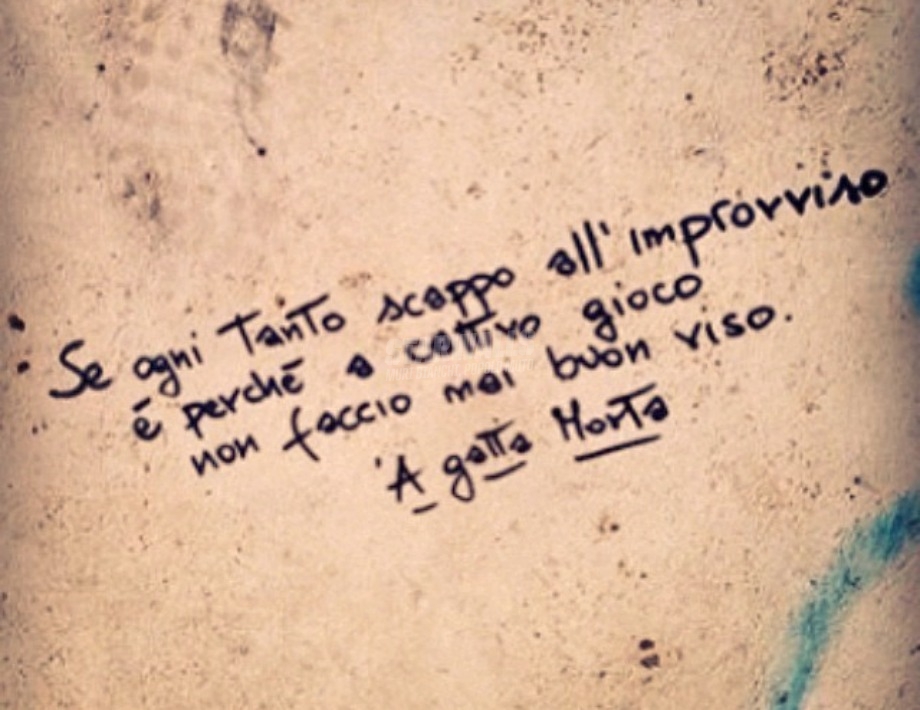 Se ogni Tanto scappo all'improvviso
é perché a cattivo gioco
non faccio mai buon viso.
'A gatta Morta